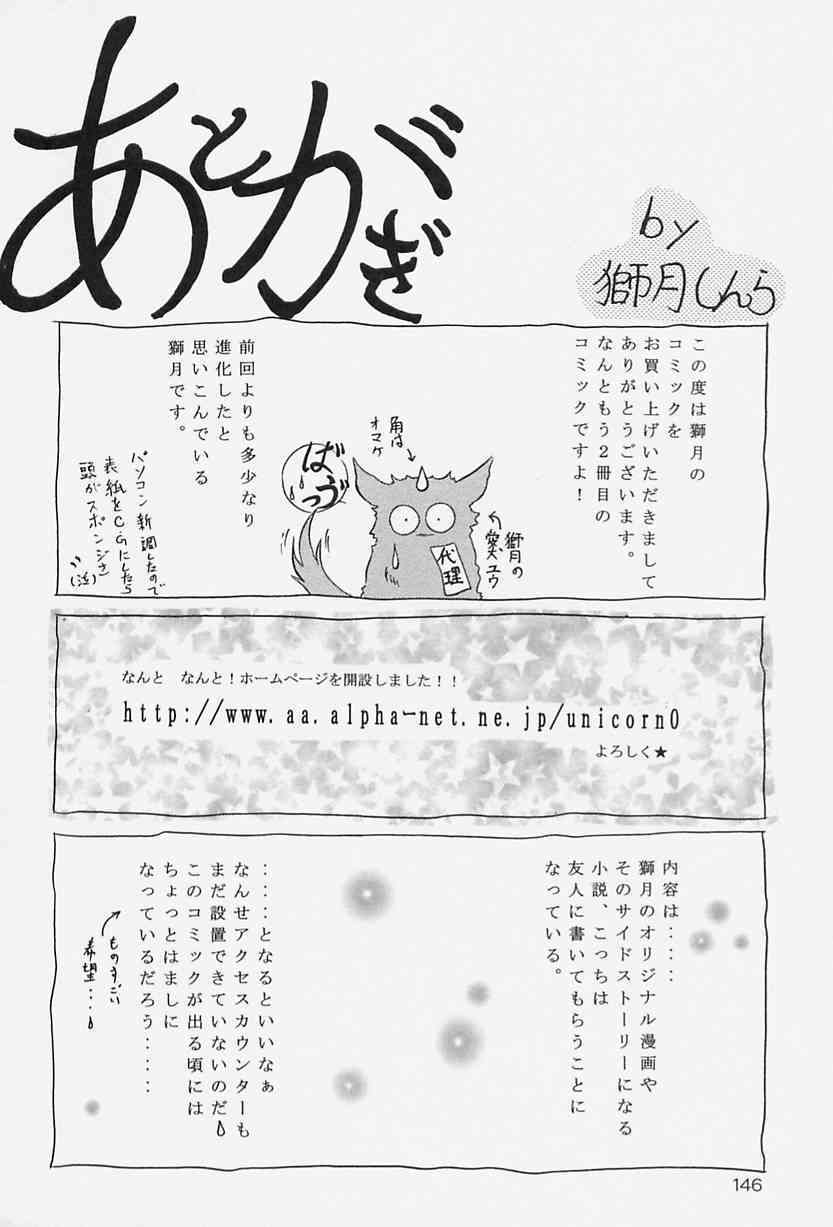 あとがぎ
by
獅月しんら
この度は獅月の
コミックを
お買い上げいただきまして
ありがとうございます。
なんともう２冊目の
コミックですよ！
獅月の
愛犬ユウ
代理
角は
オマケ
ばうっ
前回よりも多少なり
進化したと
思いこんでいる
獅月です。
パソコン新調したので
表紙をCGにしたら
頭がスポンジさ
(泣)
なんと　なんと！ホームページを開設しました！！
http://www.aa.alpha-net.ne.jp/unicorn0
よろしく★
内容は：：：：
獅月のオリジナル漫画や
そのサイドストーリーになる
小説、こっちは
友人に書いてもらうことに
なっている。
：：：：となるといいなぁ
なんせアクセスカウンターも
まだ設置できていないのだ
このコミックが出る頃には
ちょっとはましに
なっているだろう：：：：
ものすごい
希望...
146